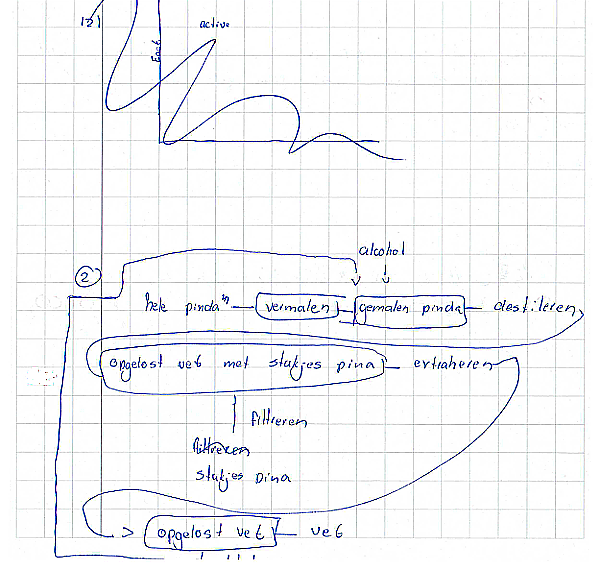 121
active
Each
alcohol
2
hele pinda'n vermalen gemalen pinda destileren
opgelost vet met stukjes pina extraheren
filtreren
filtreren
stukjes pina
> opgelost vet vet